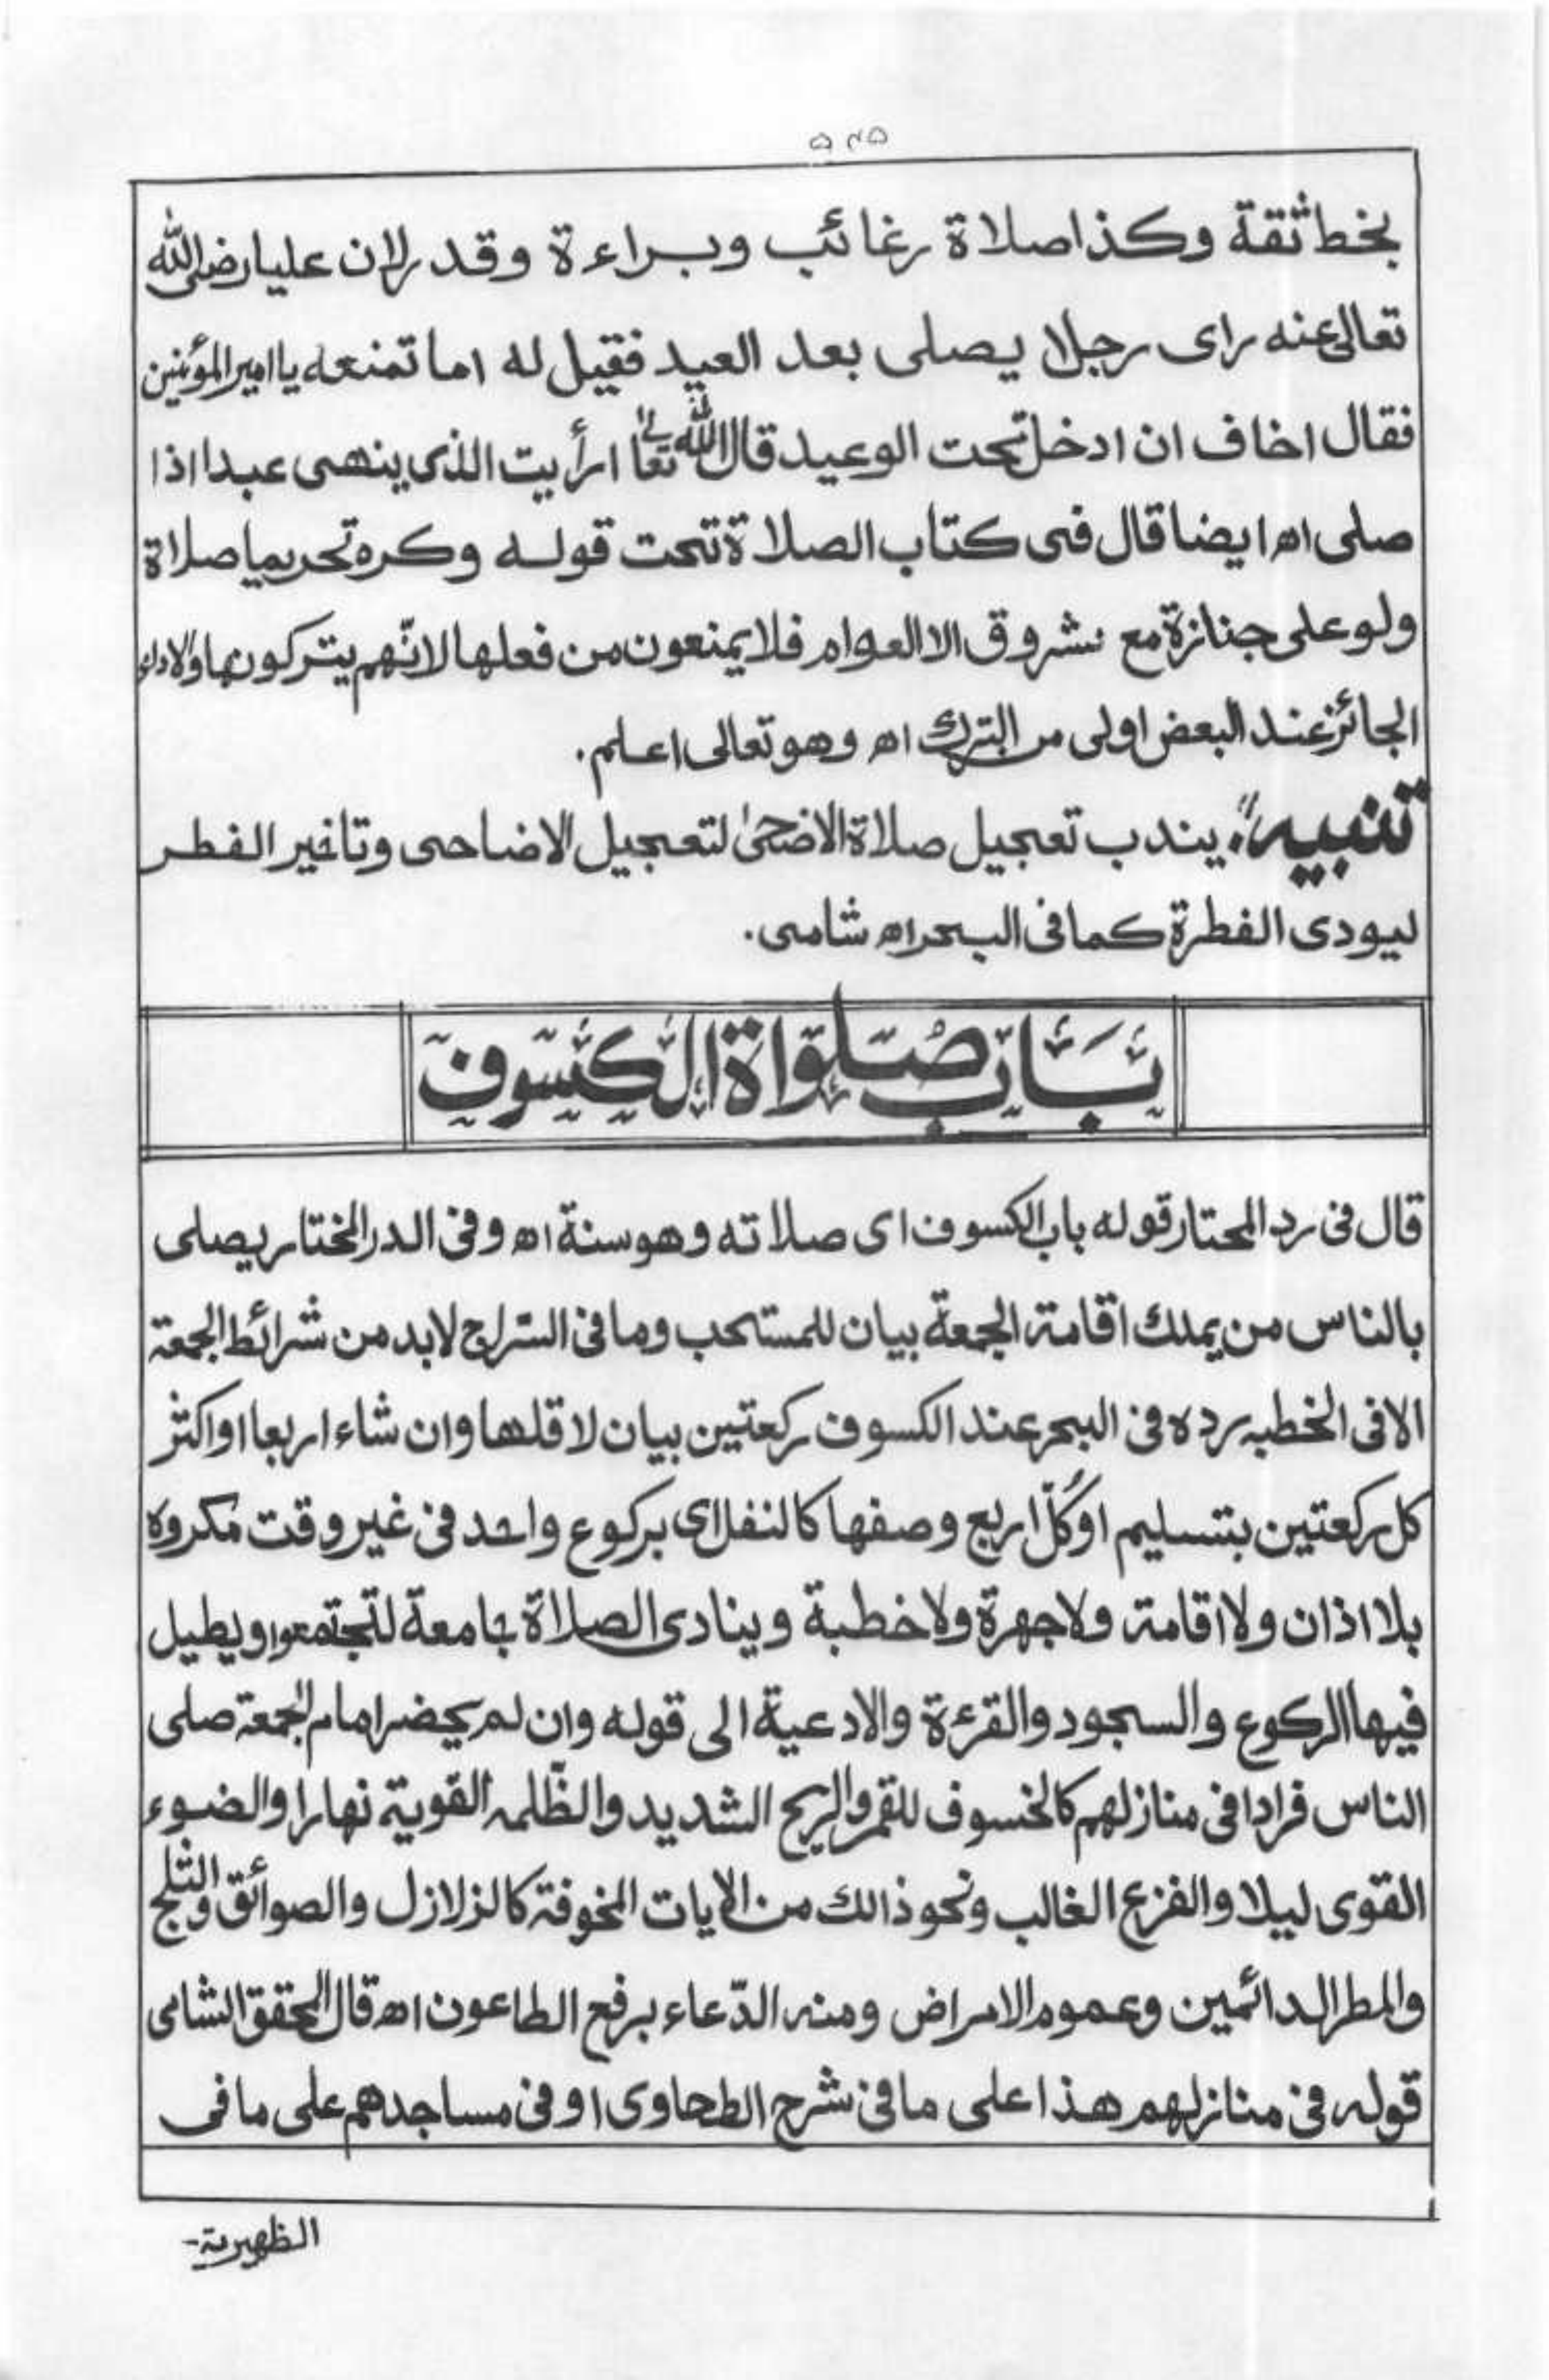 ۵۴۵
بخط ثقة وكذا صلاة رغائب وبراءة وقدر لان عليا رضى الله
تعالى عنه راى رجلا يصلى بعد العيد فقيل له اما تمنعه يا امير المؤمنين
فقال اخاف ان ادخل تحت الوعيد قال الله تعا ارأيت الذى ينهى عبدا اذا
صلى اه ايضا قال فى كتاب الصلاة تحت قوله وكره تحريما صلاة
ولو على جنازة مع شروق الا العوام فلا يمنعون من فعلها لانّهم يتركونها والاداء
الجائز عند البعض اولى من الترك اه وهو تعالى اعلم.
تنبيه: يندب تعجيل صلاة الاضحىٰ لتعجيل الاضاحى وتاخير الفطر
ليودى الفطرة كما فى البحر اه شامى.
بَابُ صَلوٰاة الكسوف
قال فى رد المحتار قوله باب الكسوف اى صلاته وهو سنة اه وفى الدر المختار يصلى
بالناس من يملك اقامة الجمعة بيان للمستحب وما فى السّراج لابد من شرائط الجمعة
الا فى الخطبه رده فى البحر عند الكسوف ركعتين بيان لاقلها وان شاء اربعا او اكثر
كل ركعتين بتسليم او كُلّ اربع وصفها كالنفل اى بركوع واحد فى غير وقت مكروه
بلا اذان ولا اقامة ولا جهرة ولا خطبة وينادى الصلاة جامعة لتجتمعوا ويطيل
فيها الركوع والسجود والقرءة والادعية الى قوله وان لم يحضر امام الجمعة صلى
الناس فرادا فى منازلهم كالخسوف للقمر والريح الشديد والظّلمه القوية نهارا والضوء
القوى ليلا والفزع الغالب ونحو ذالك من الايات المخوفة كالزلازل والصوائق والثلج
والمطر الدائمين وعموم الامراض ومنه الدّعاء برفع الطاعون اه قال المحقق الشامى
قوله فى منازلهم هذا على ما فى شرح الطحاوى او فى مساجدهم على ما فى
الظهيرية-